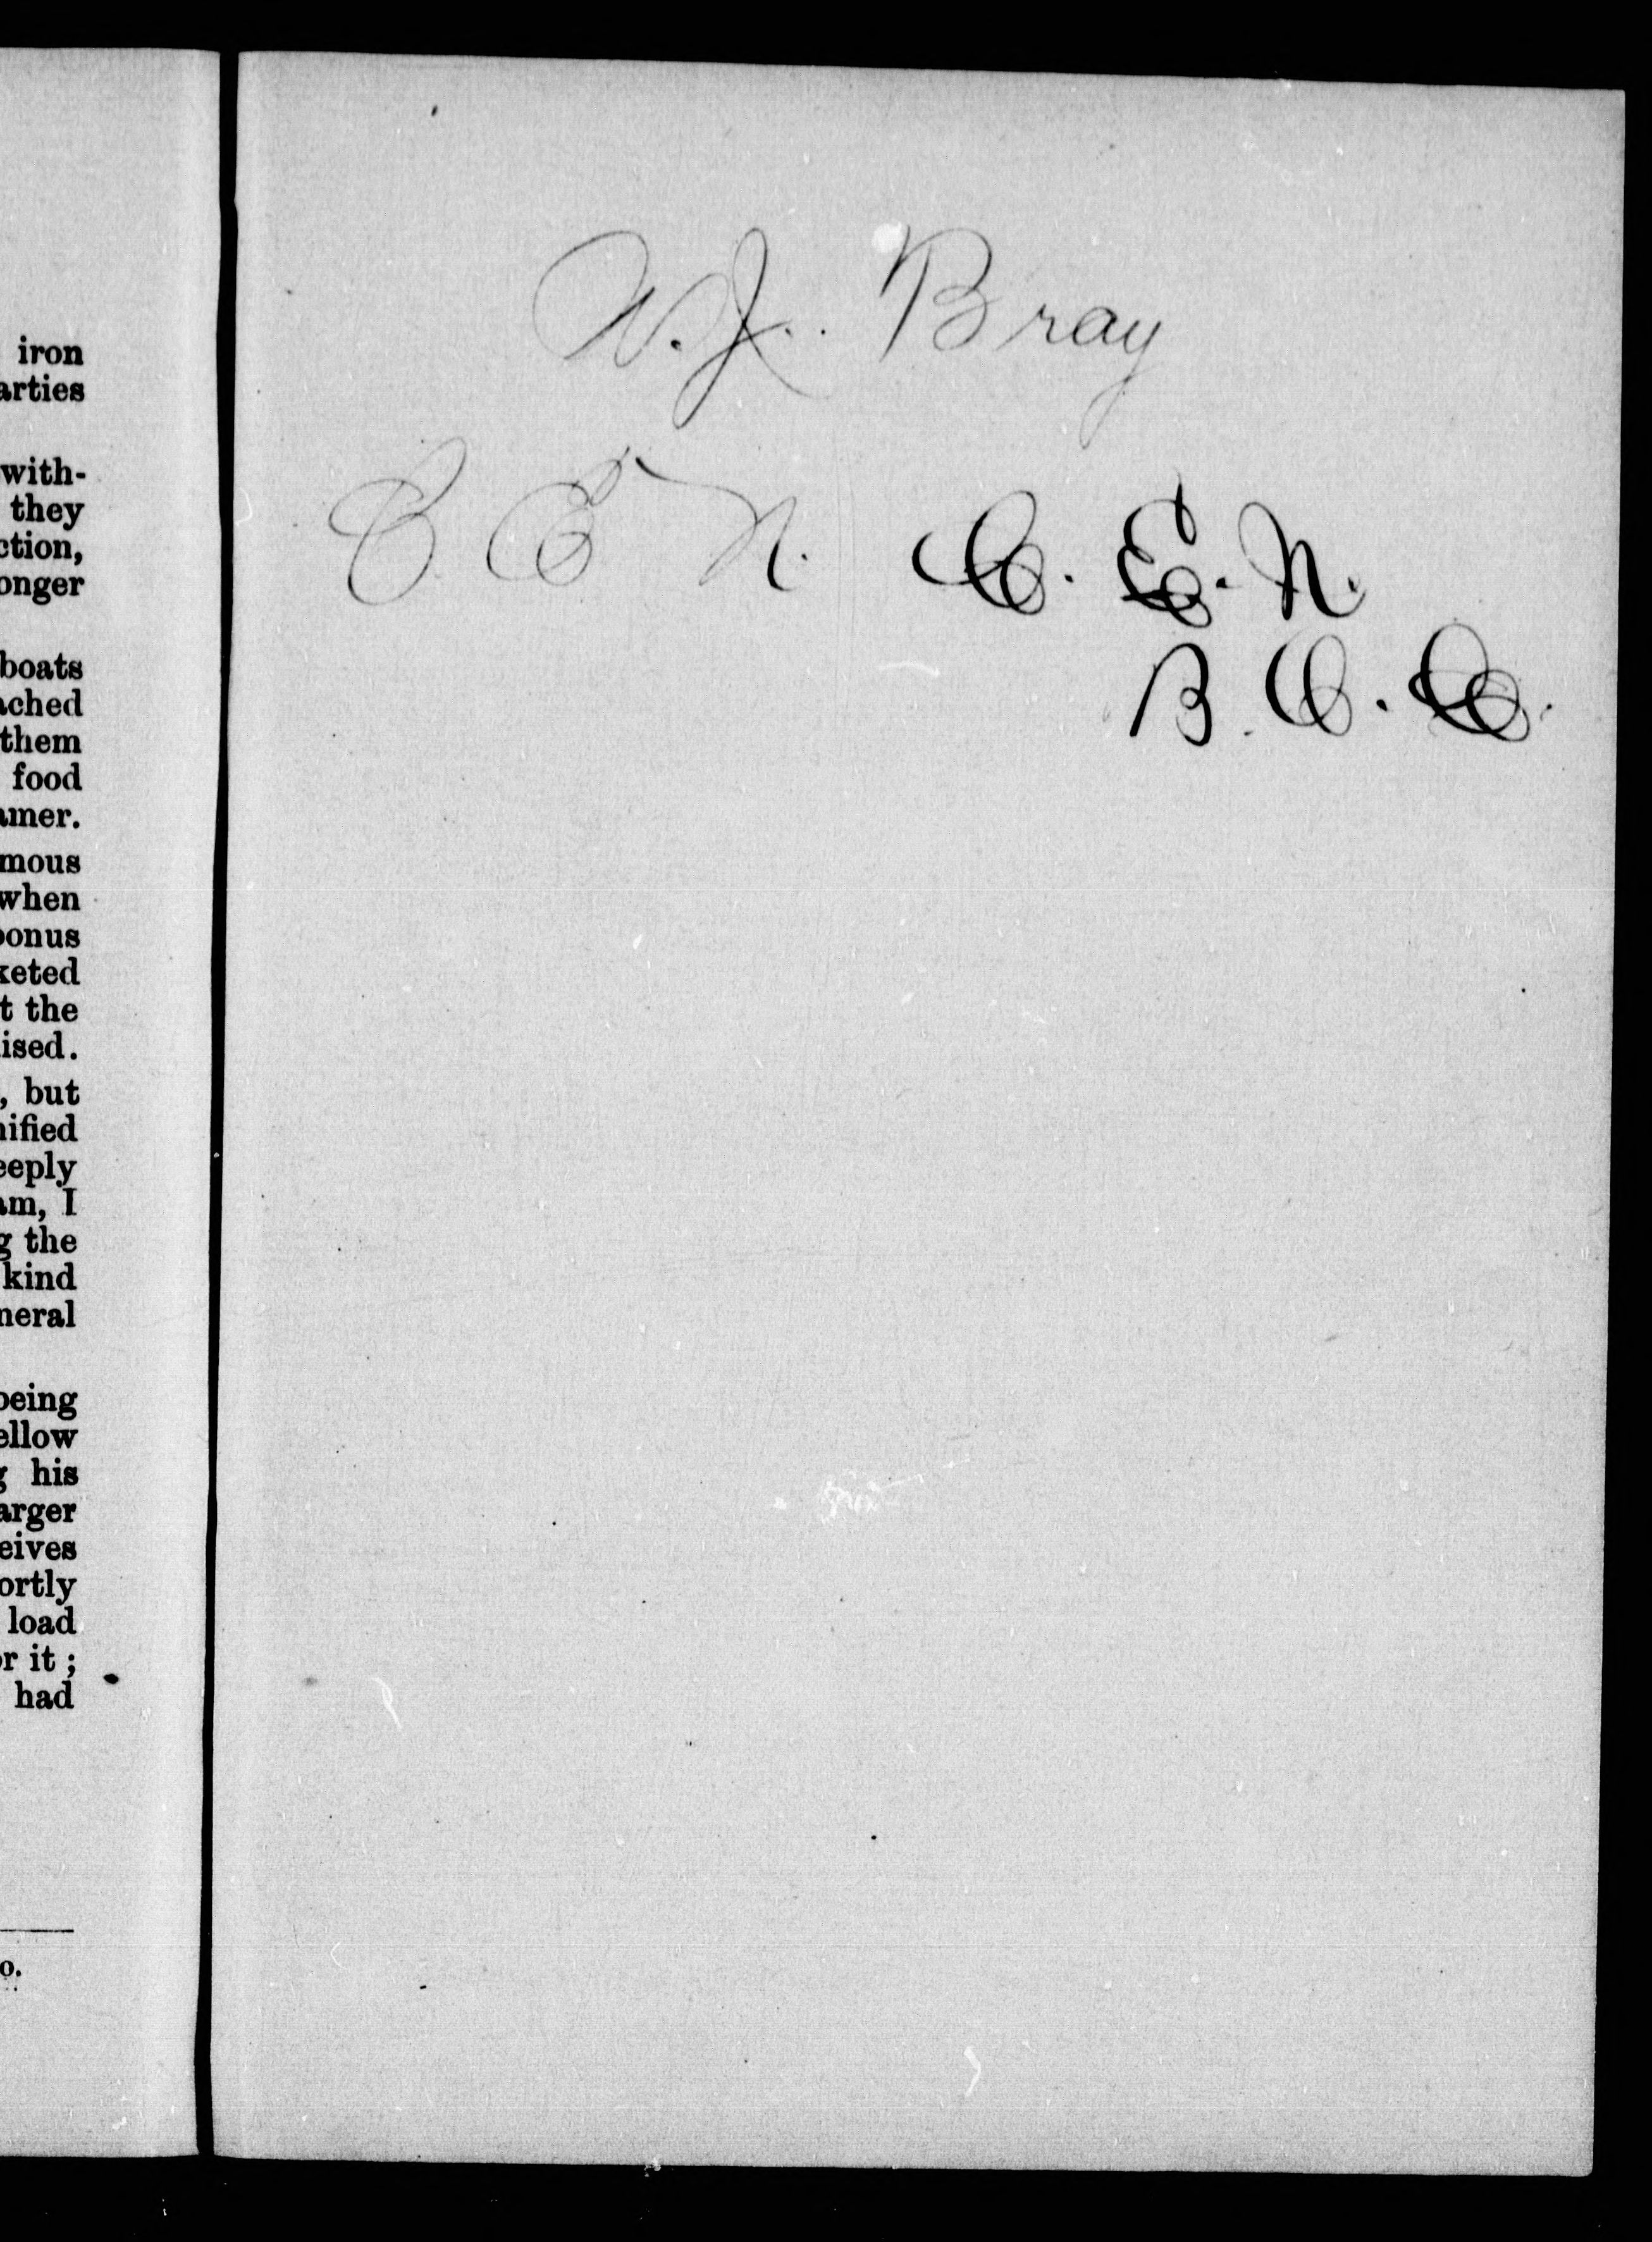 iron
arties
with-
they
ction,
onger
boats
ached
them
food
amer.
mous
when
bonus
keted
t the
ised.
, but
nified
eeply
am, I
g the
kind
neral
being
ellow
g his
arger
eives
ortly
load
or it ;
had
o.
W. J. Bray
C E N. C. E. N.
B. C.